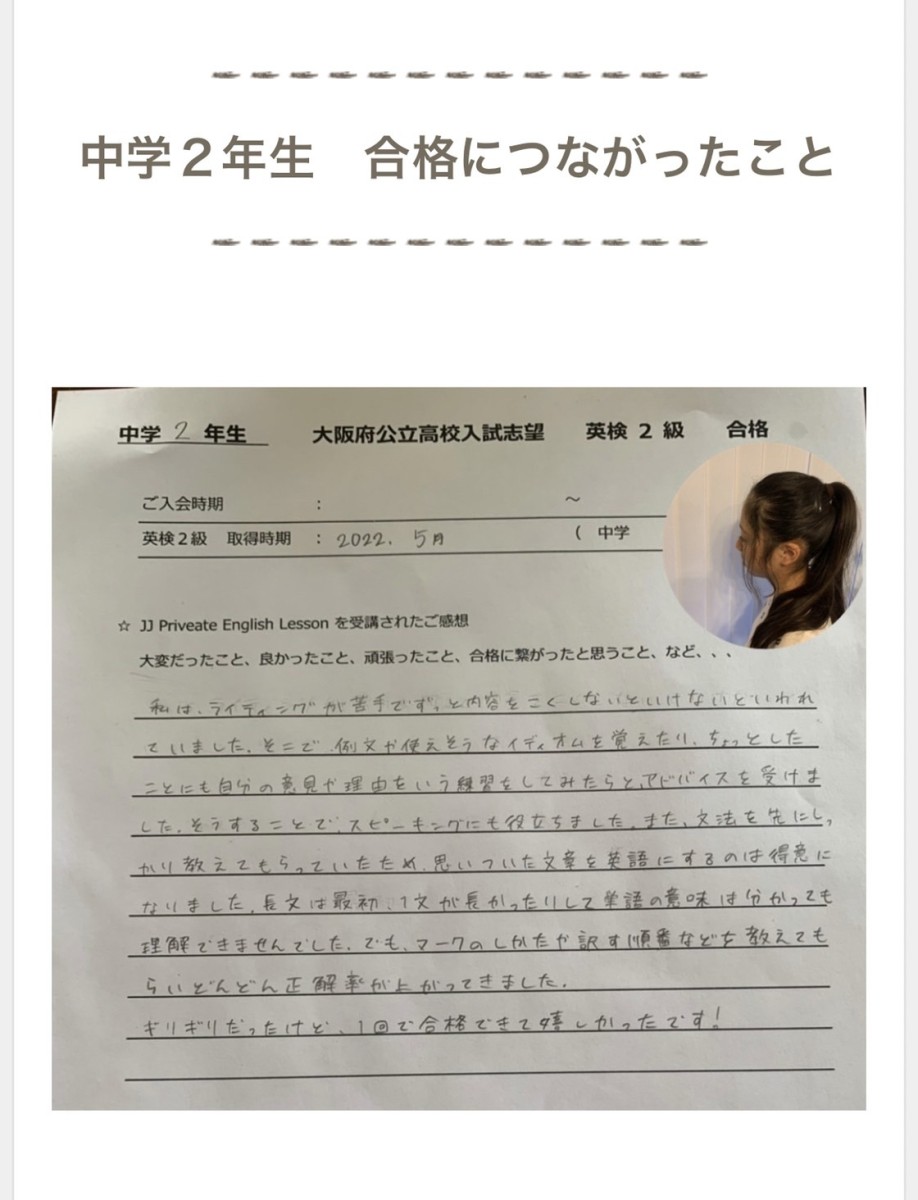 中学２年生　合格につながったこと
中学 2 年生　大阪府公立高校入試志望　英検 2 級　合格
ご入会時期　：　～
英検２級　取得時期　：2022. 5月　(　中学
☆ JJ Priveate English Lesson を受講されたご感想
大変だったこと、良かったこと、頑張ったこと、合格に繋がったと思うこと、など、、、
私は、ライティングが苦手でず。と内容をこくしないといけないといわれ
ていました。そこで、例文や使えそうなイディオムを覚えたり、ちょっとした
ことにも自分の意見や理由をいう練習をしてみたらと、アドバイスを受けま
した。そうすることで、スピーキングにも役立ちました。また、文法を先にしっ
かり教えてもらっていたため、思いついた文章を英語にするのは得意に
なりました。長文は最初、1文が長かったりして単語の意味は分かっても
理解できませんでした。でも、マークのしかたや訳す順番などを教えても
らいどんどん正解率が上がってきました。
ギリギリだったけど、1回で合格できて嬉しかったです！